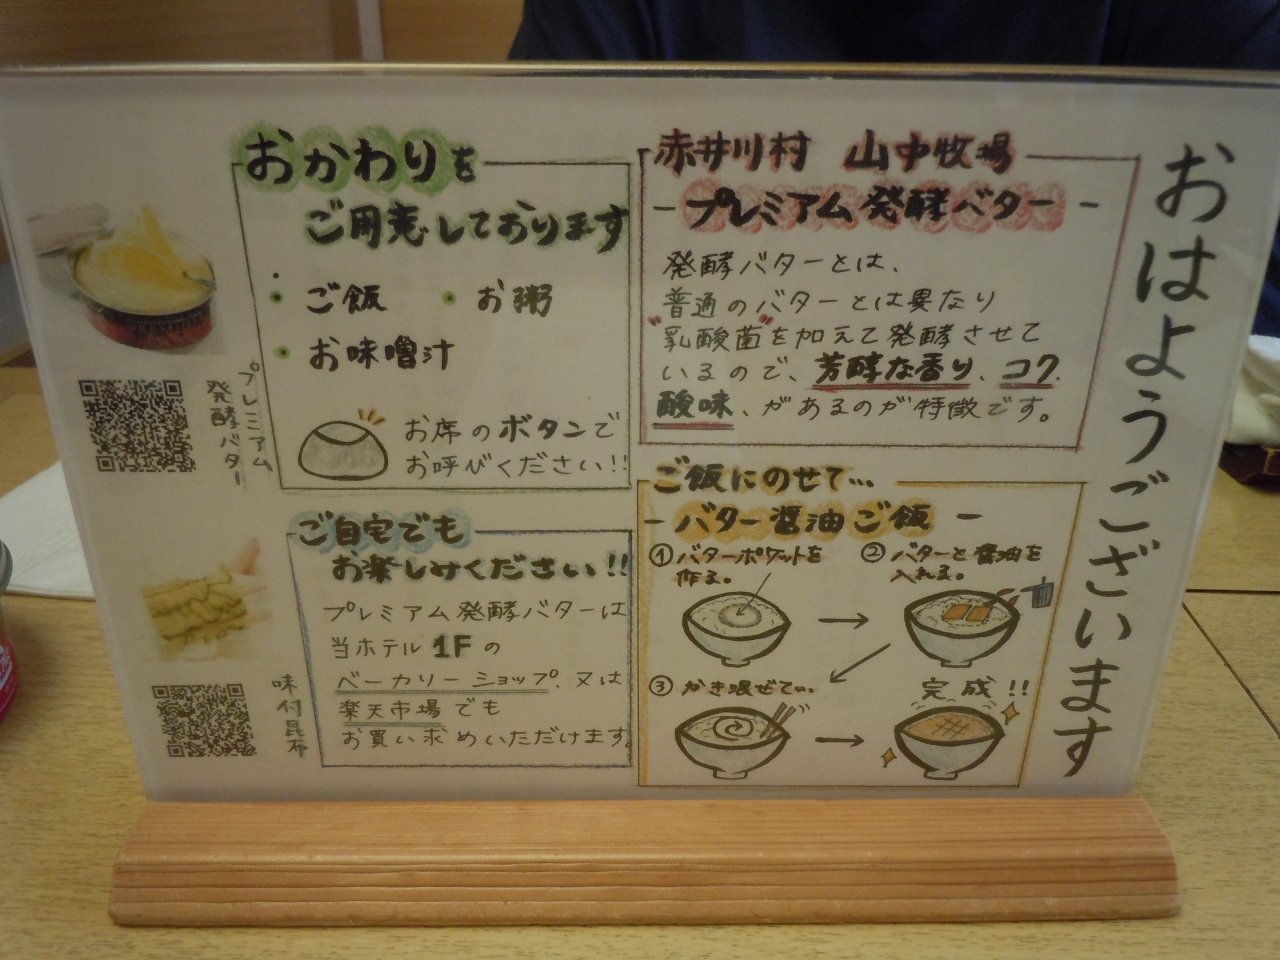 おはようございます
赤井川村 山中牧場
－プレミアム発酵バター－
発酵バターとは、
普通のバターとは異なり
"乳酸菌"を加えて発酵させて
いるので、芳醇な香り、コク、
酸味、があるのが特徴です。
おかわりを
ご用意しております
・ご飯 ・お粥
・お味噌汁
お席のボタンで
お呼びください!!
プレミアム
発酵バター
ご飯にのせて…
－バター醤油ご飯－
①バターポケットを
作る。
②バターと醤油を
入れる。
③かき混ぜて…
完成!!
ご自宅でも
お楽しみください!!
プレミアム発酵バターは
当ホテル1Fの
ベーカリーショップ、又は
楽天市場でも
お買い求めいただけます。
味付昆布